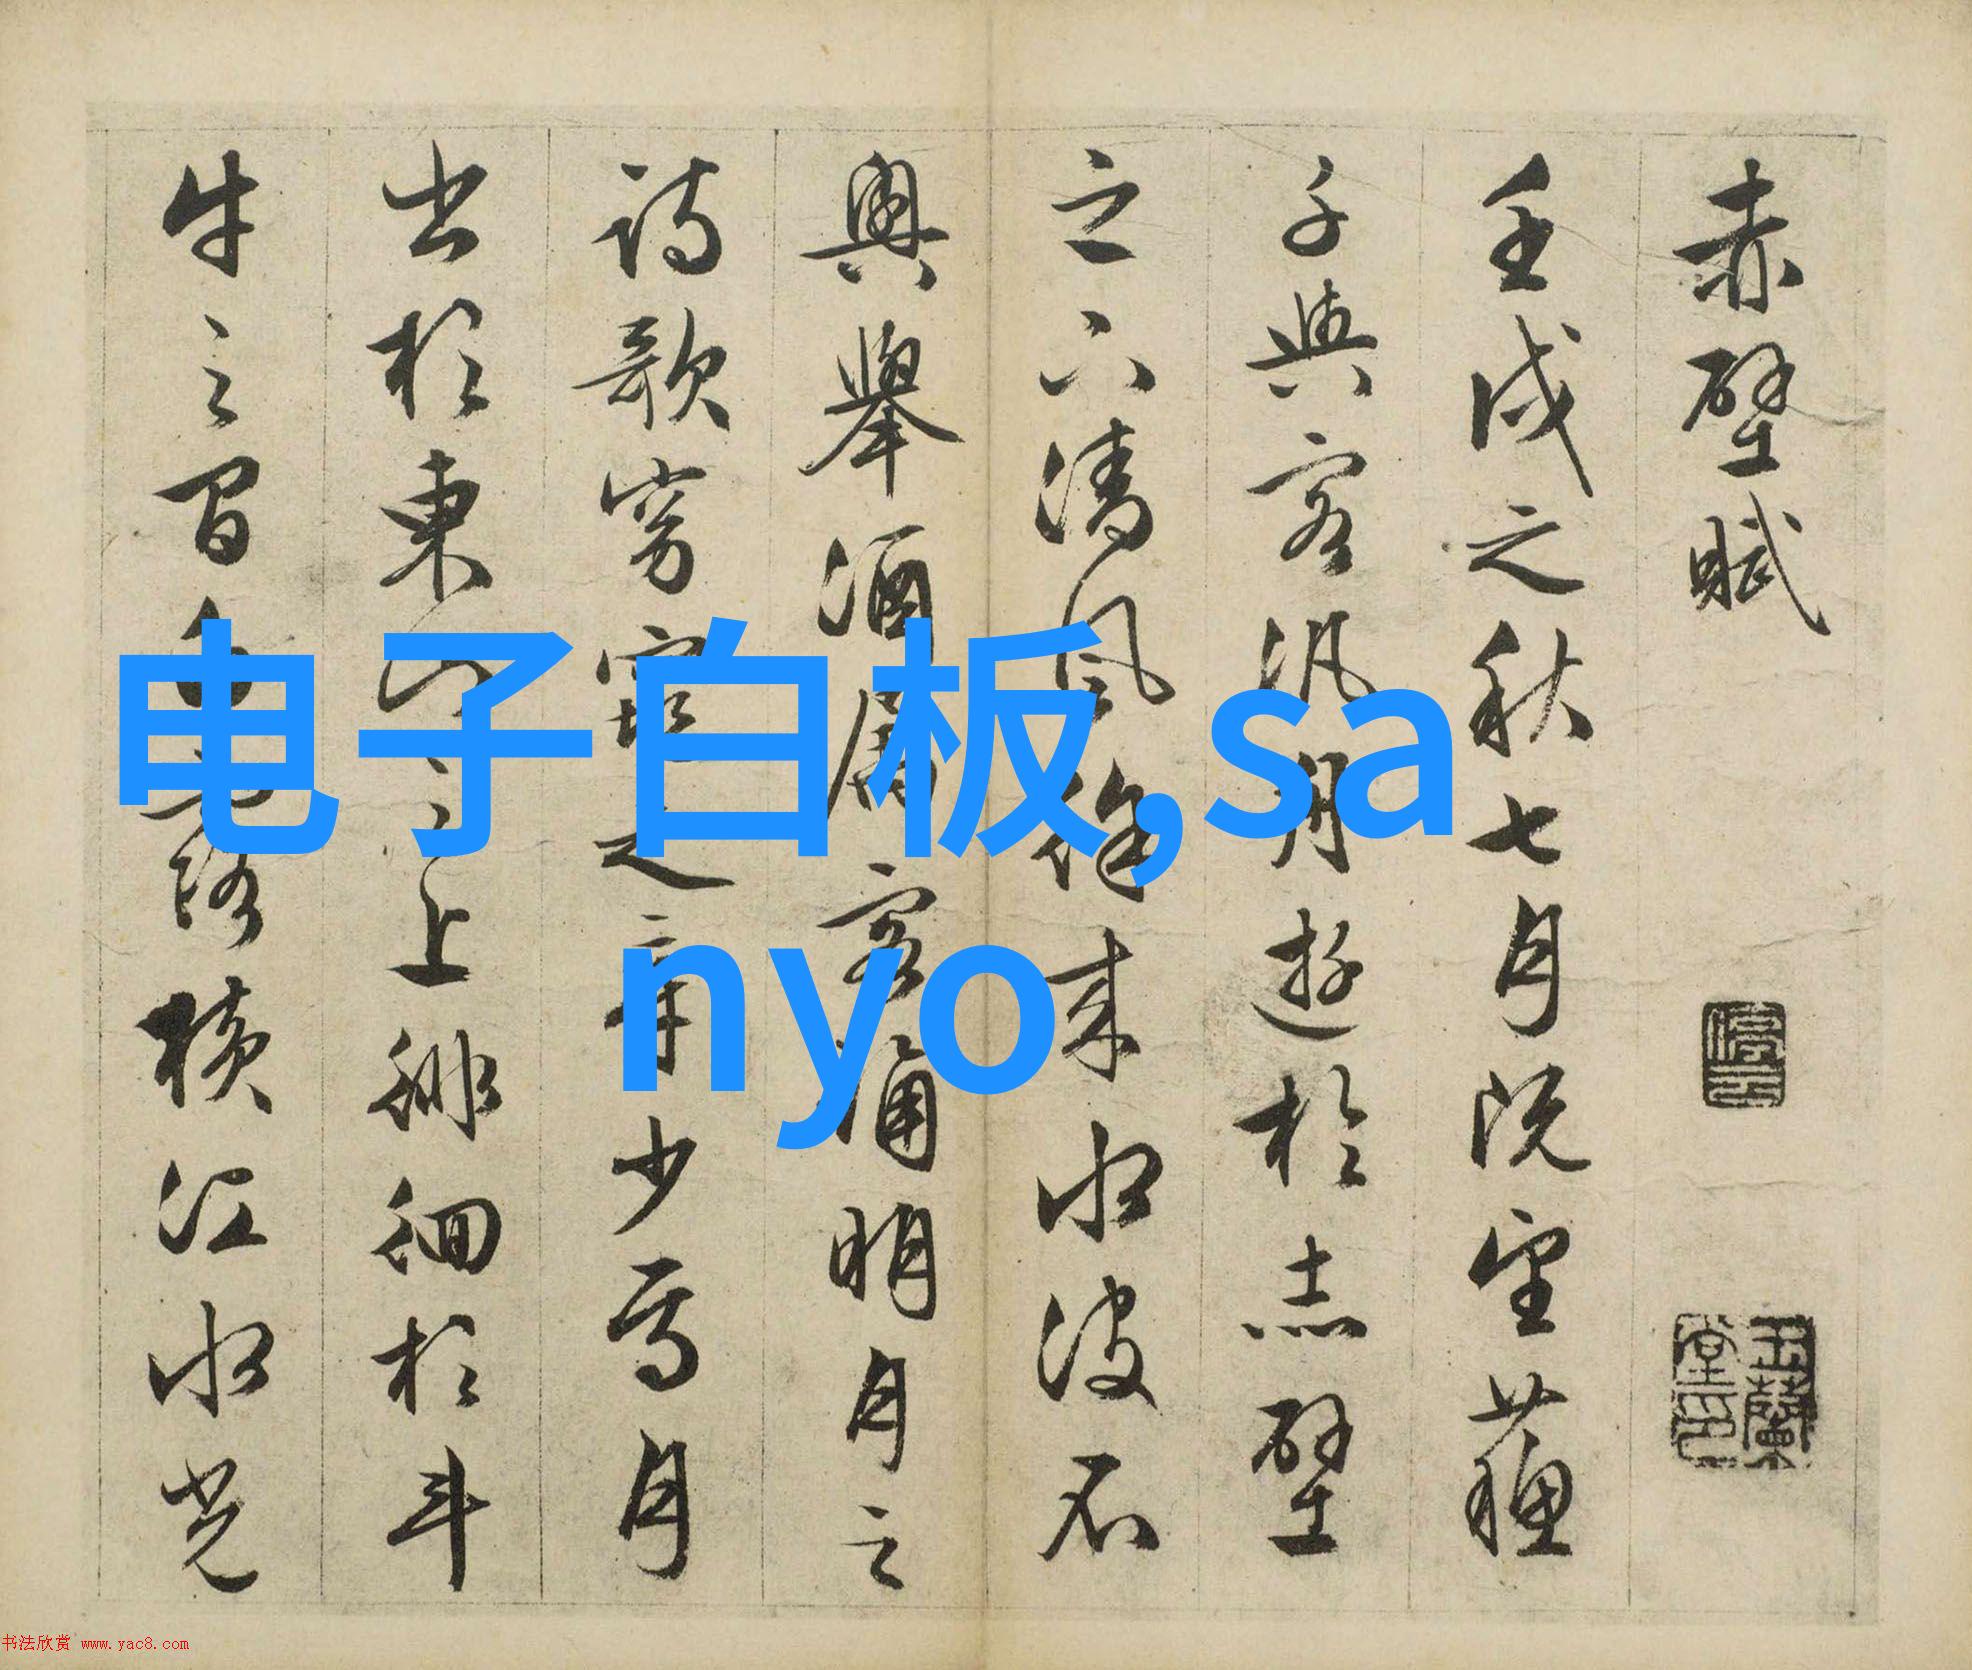 赤壁賦
壬戌之秋七月既望蘇
子與客汎舟遊於赤壁
之下清風徐来水波不
興舉酒屬客誦明月之
詩歌窈窕之章少焉月
出於東山之上徘徊於斗
牛之間白露橫江水光
玉蘭堂印
电子白板,sa
nyo
书法欣赏 www.yac8.com